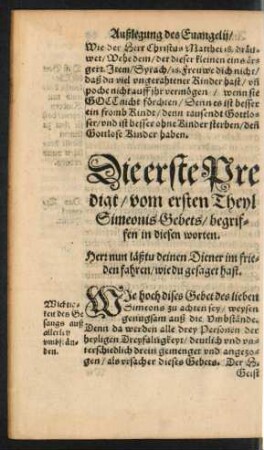 Außlegung des Euangelij/
Wie der Herr Christus Matthei 18. dräu-
wet/ Wehe dem/ der dieser kleinen eins ärs
gert. Item/ Syrach/ 16. frewe dich nicht/
daß du viel ungerahtener Kinder hast/ vñ
poche nicht auff ihr vermögen/ wenn sie
GOTT nicht förchten/ Denn es ist besser
ein fromb Kindt/ denn tausendt Gottlo-
ser/ vnd ist besser ohne Kinder sterben/ deñ
Gottlose Kinder haben.
Die erste Pre
digt/ vom ersten Theyl
Simeonis Gebets/ begrif-
fen in diesen worten.
Herr nun läßtu deinen Diener im frie-
den fahren/ wie du gesaget hast.
Wie hoch dises Gebet des lieben
Simeons zu achten sey/ weysen
genugsam auß die Vmbstände.
Denn da werden alle drey Personen der
heyligen Dreyfaltigkeyt/ deutlich vnd vn-
terschiedlich drein gemenget vnd angezo-
gen/ als vrsacher dieses Gebets. Der H.
Geist
ten des Ge
sangs auß
allerley
vmbstän-
den.